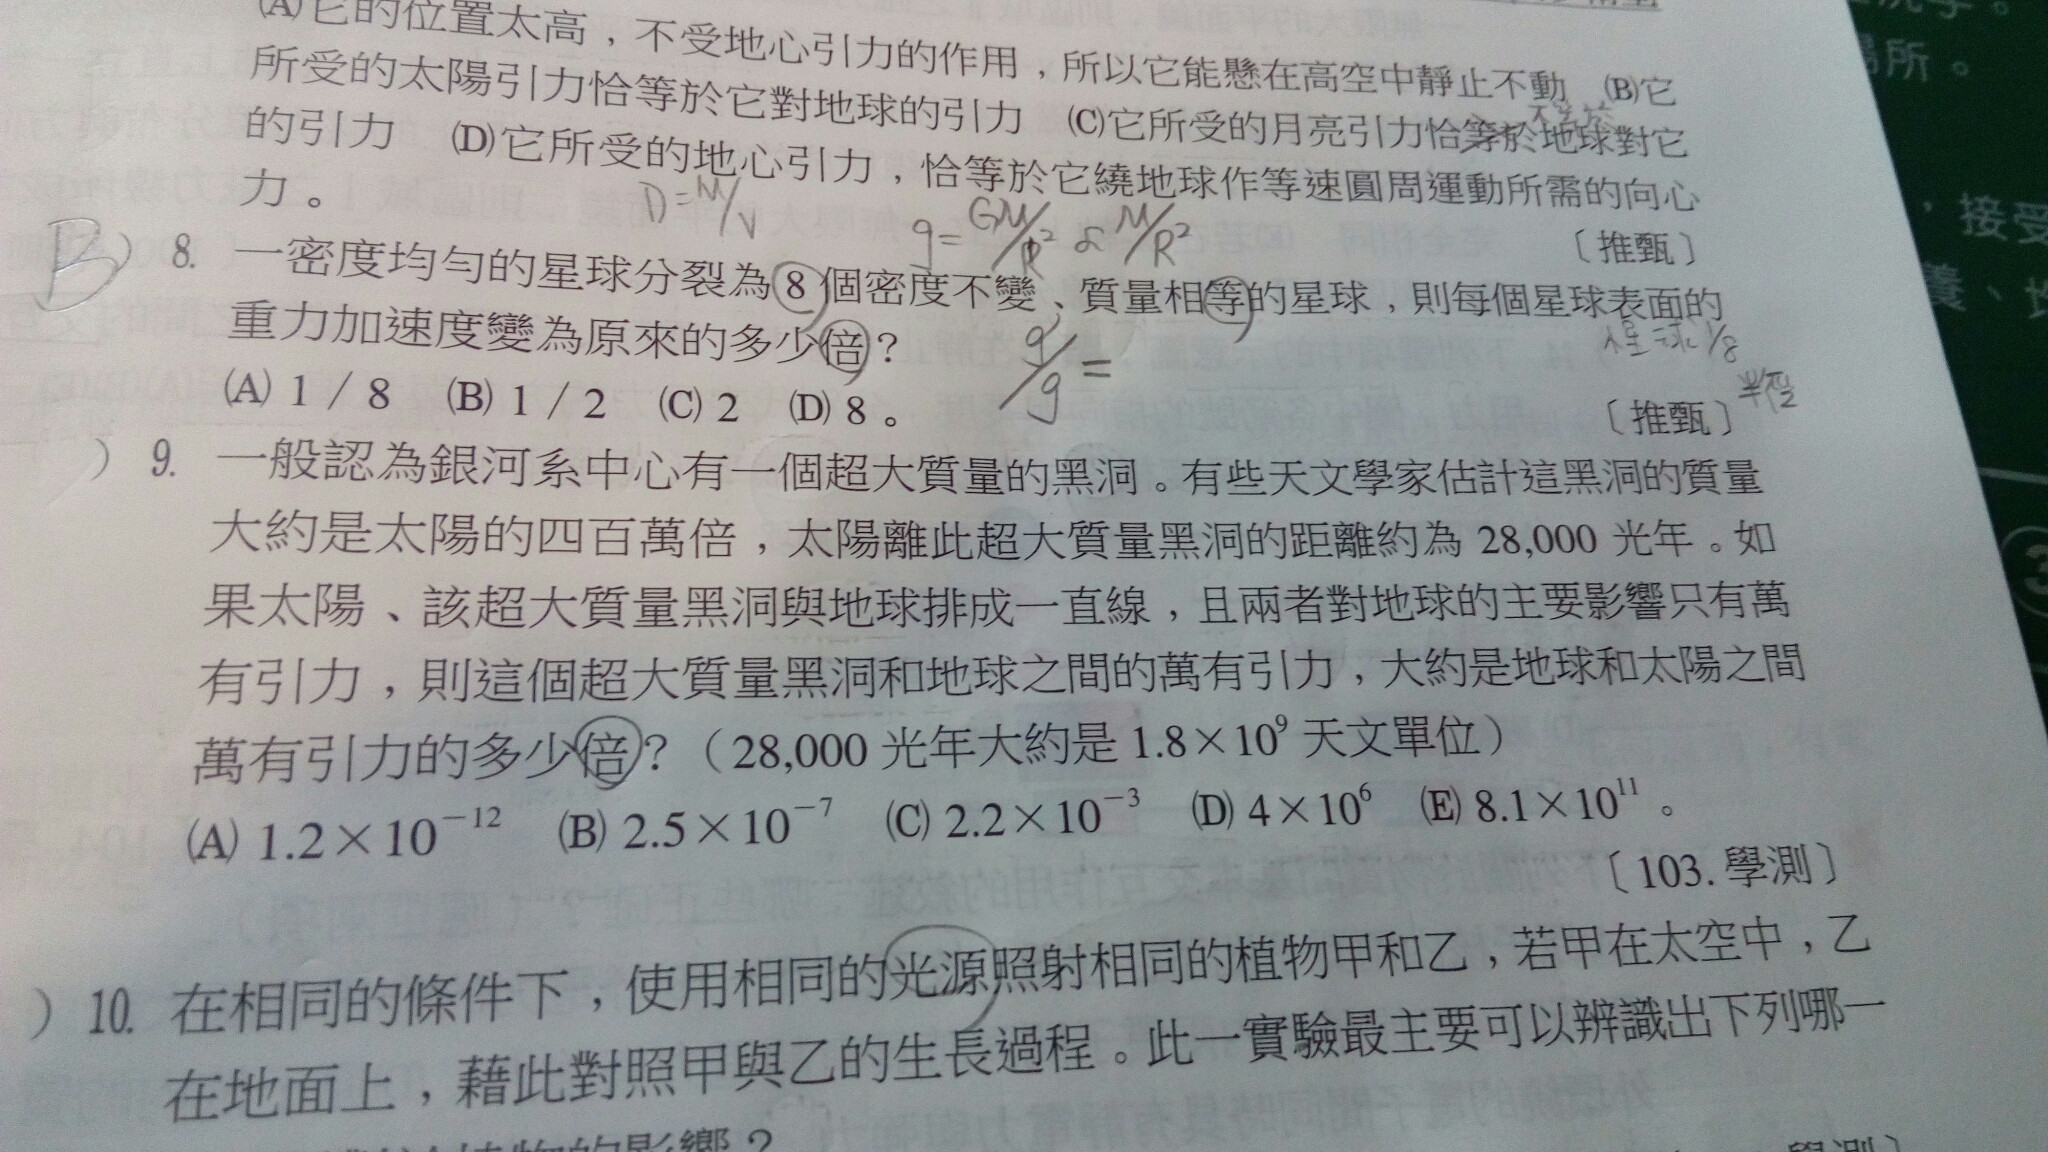 (A)它的位置太高，不受地心引力的作用，所以它能懸在高空中靜止不動　(B)它
所受的太陽引力恰等於它對地球的引力　(C)它所受的月亮引力恰等於地球對它
的引力　(D)它所受的地心引力，恰等於它繞地球作等速圓周運動所需的向心
力。
〔推甄〕
D=M/V
g=GM/R² ∝ M/R²
B
) 8. 一密度均勻的星球分裂為8個密度不變、質量相等的星球，則每個星球表面的
重力加速度變為原來的多少倍？
g/g=
星球1/8
半徑
(A) 1 / 8　(B) 1 / 2　(C) 2　(D) 8。
〔推甄〕
) 9. 一般認為銀河系中心有一個超大質量的黑洞。有些天文學家估計這黑洞的質量
大約是太陽的四百萬倍，太陽離此超大質量黑洞的距離約為 28,000 光年。如
果太陽、該超大質量黑洞與地球排成一直線，且兩者對地球的主要影響只有萬
有引力，則這個超大質量黑洞和地球之間的萬有引力，大約是地球和太陽之間
萬有引力的多少倍？（28,000 光年大約是 1.8×10⁹ 天文單位）
(A) 1.2×10⁻¹²　(B) 2.5×10⁻⁷　(C) 2.2×10⁻³　(D) 4×10⁶　(E) 8.1×10¹¹。
〔103. 學測〕
) 10. 在相同的條件下，使用相同的光源照射相同的植物甲和乙，若甲在太空中，乙
在地面上，藉此對照甲與乙的生長過程。此一實驗最主要可以辨識出下列哪一
植物的影響？
學測〕
所。
，接受
養、
③